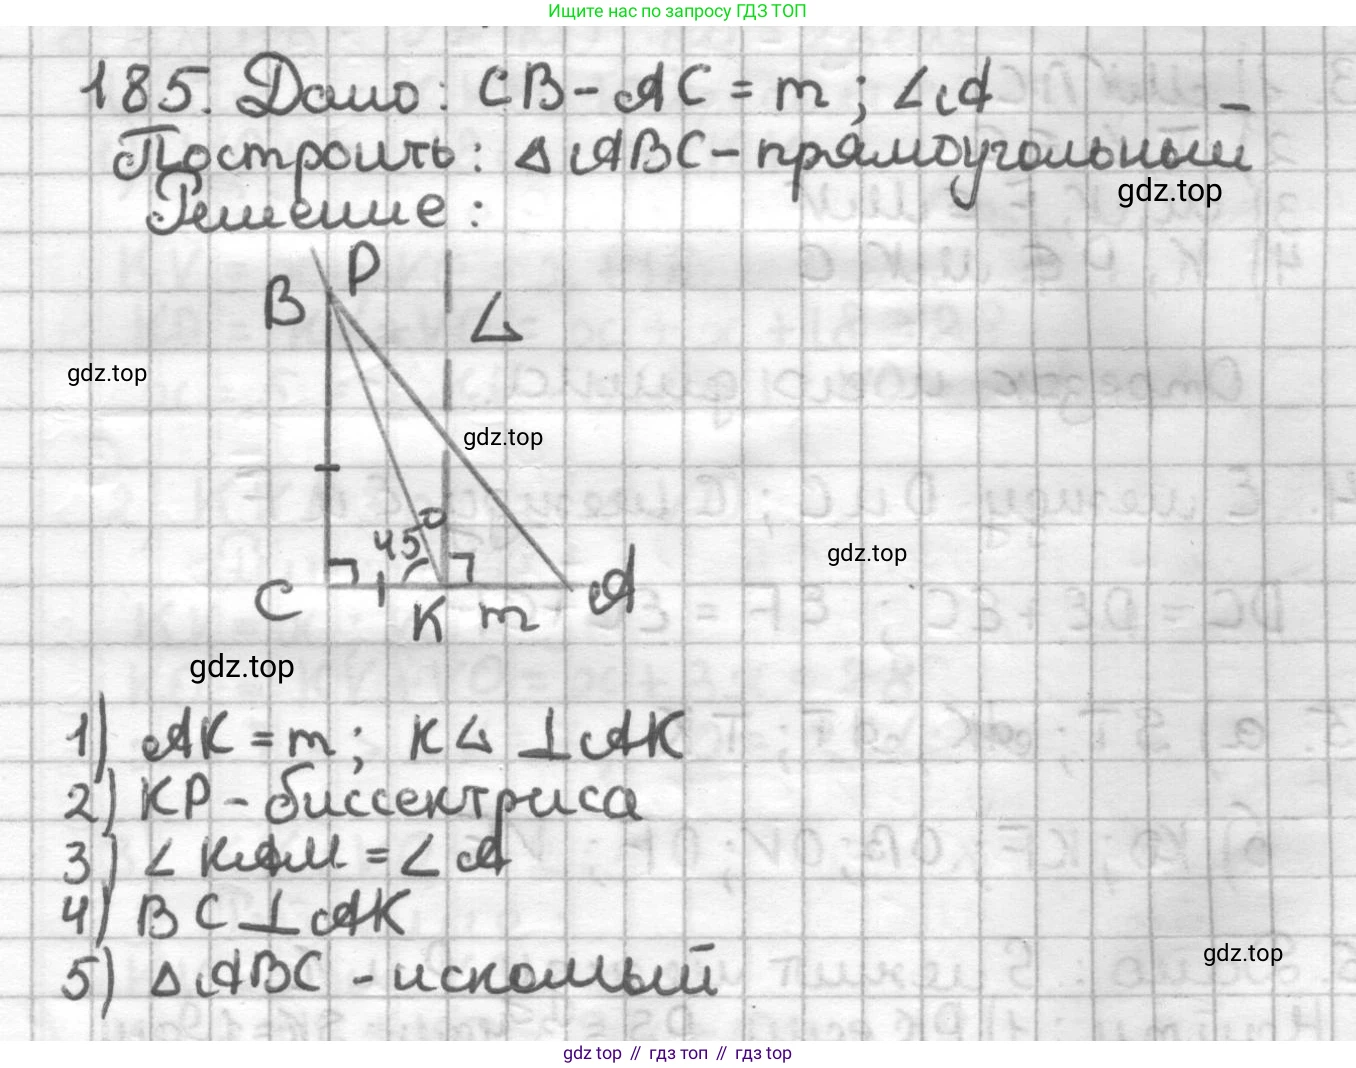 Ищите нас по запросу ГДЗ ТОП
185. Дано: CB - AC = m; ∠A
Построить: ΔABC - прямоугольный
gdz.top
Решение:
P
B
∠
gdz.top
gdz.top
45°
gdz.top
C
K
m
A
gdz.top
1) AK = m; K∠ ⊥ AK
2) KP - биссектриса
3) ∠KAM = ∠A
4) BC ⊥ AK
5) ΔABC - искомый
gdz.top
gdz.top // гдз топ // гдз top